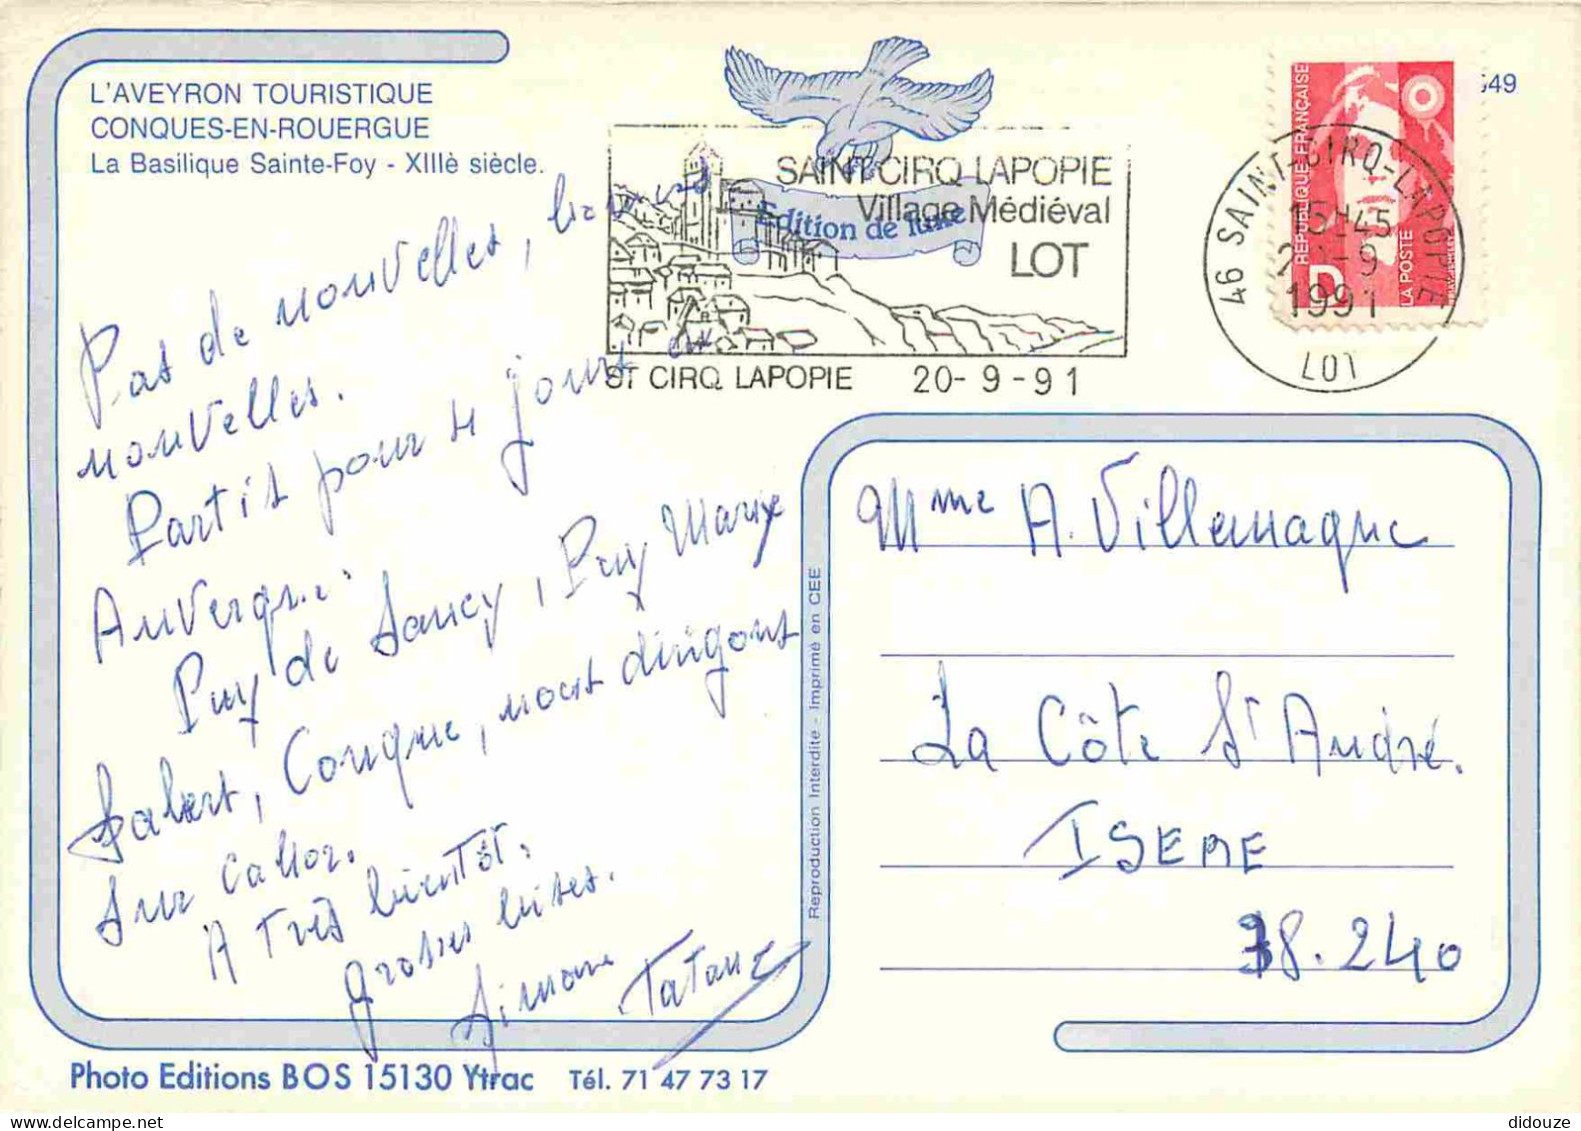 L'AVEYRON TOURISTIQUE
CONQUES-EN-ROUERGUE
La Basilique Sainte-Foy - XIIIè siècle.
Edition de luxe
SAINT-CIRQ LAPOPIE
Village Médiéval
LOT
ST CIRQ LAPOPIE 20-9-91
549
RÉPUBLIQUE FRANÇAISE
LA POSTE
D
46 SAINT-CIRQ-LAPOPIE
15H45
-9
1991
LOT
Pas de nouvelles, bonnes
nouvelles.
Partis pour 4 jours en
Auvergne
Puy de Sancy, Puy Marye
Salers, Conque, nous dirigons
sur Cahor.
A très bientôt.
grosses bises.
Simone Tatane
Mme A. Villemague
La Côte St André.
ISERE
38.240
Reproduction Interdite - Imprimé en CEE
Photo Editions BOS 15130 Ytrac Tél. 71 47 73 17
didouze